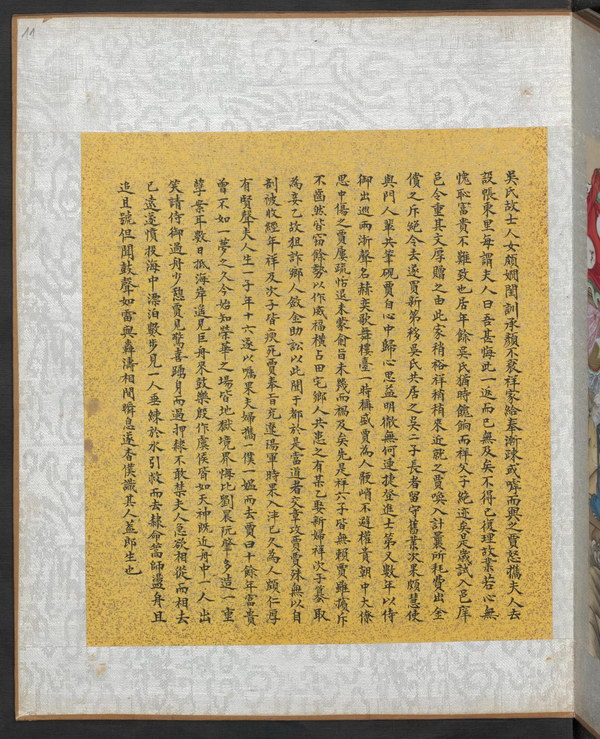 吳氏故士人女頗嫻閨訓承顏不衰祥家給奉漸疎或嘑而與之賈怒攜夫人去
設帳東里每謂夫人曰吾甚悔此一返而已無及矣不得已復理故業若心無
愧恥富貴不難致也居年餘吳氏猶時餽餉而祥父子絕迹矣是歲試入邑庠
邑令重其文厚贈之由此家稍裕祥稍稍來近就之賈喚入計曩所耗費出金
償之斥絕令去遂買新第移吳氏共居之吳二子長者留守舊業次杲頗慧使
與門人輩共筆硯賈自心中歸心思益明徹無何連捷登進士第又數年以侍
御出巡兩浙聲名赫奕歌舞樓臺一時稱盛賈為人骾峭不避權貴朝中大僚
思中傷之賈屢疏恬退未蒙俞旨未幾而禍及矣先是祥六子皆無賴賈雖擯斥
不齒然皆竊餘勢以作威福橫占田宅鄉人共患之有某乙娶新婦祥次子篡取
為妾乙故狙詐鄉人斂金助訟以此聞于都於是當道者文章攻賈賈殊無以自
剖被收經年祥及次子皆瘐死賈奉旨充遼陽軍時杲入泮已久為人頗仁厚
有賢聲夫人生一子年十六遂以囑杲夫婦攜一僕一媼而去賈曰十餘年富貴
曾不如一夢之久今始知榮華之場皆地獄境界悔比劉晨阮肇多造一重
孽案耳數日抵海岸遥見巨舟來鼓樂殷作虞候皆如天神既近舟中一人出
笑請侍御過舟少憩賈見驚喜踴身而過押隸不敢禁夫人急欲相從而相去
已遠遂憤投海中漂泊數步見一人垂練於水引救而去隸命篙師盪舟且
追且號但聞鼓聲如雷與轟濤相間瞬息遂杳僕識其人蓋郎生也